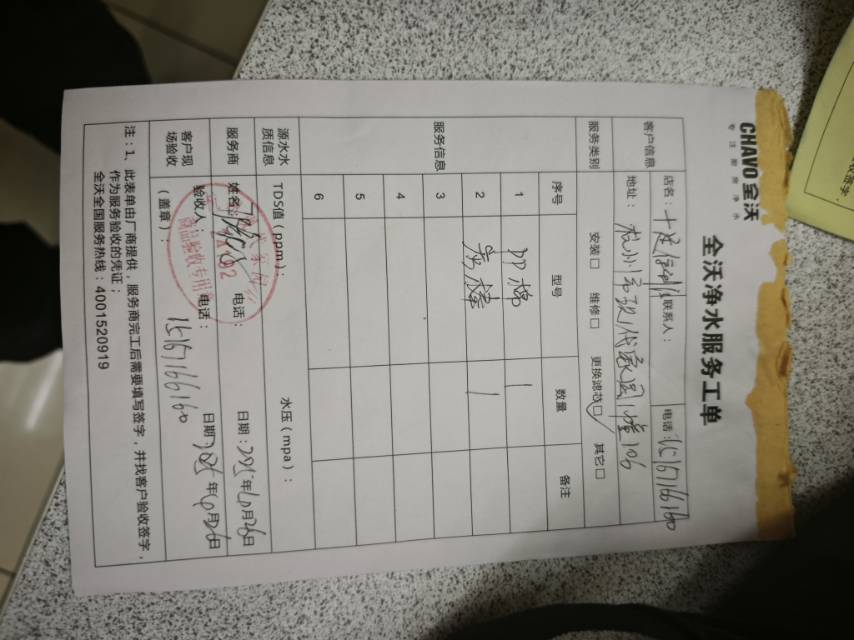 CHAVO 全沃
专注厨房净水
全沃净水服务工单
客户信息
店名： 联系人： 电话：15167166160
地址： 现代家园1幢106
服务类别
安装□ 维修□ 更换滤芯☑ 其它□
服务信息
序号 型号 数量 备注
1 PP棉 1
2 1
3
4
5
6
源水水质信息
TDS值（ppm）： 水压（mpa）：
服务商
姓名： 电话： 日期：2025年6月26日
客户现场验收
验收人： 电话：15167166160 日期：2025年6月26日
（盖章）：
商品验收专用章
注：1、此表单由厂商提供，服务商完工后需要填写签字，并找客户验收签字，
作为服务验收的凭证；
全沃全国服务热线：4001520919